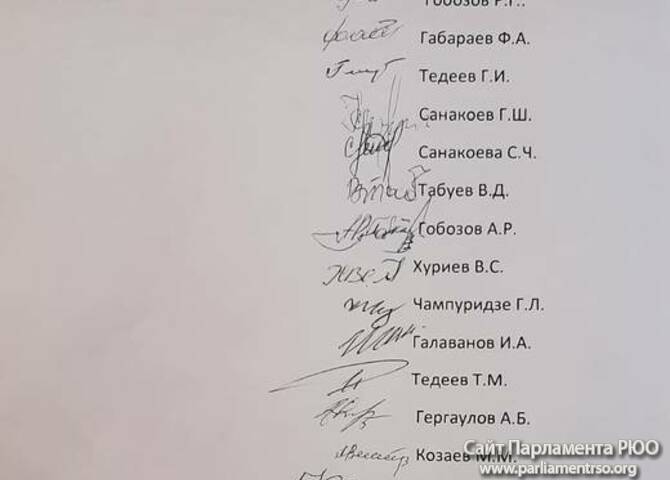 Гобозов Р.Г.
Габараев Ф.А.
Тедеев Г.И.
Санакоев Г.Ш.
Санакоева С.Ч.
Табуев В.Д.
Гобозов А.Р.
Хуриев В.С.
Чампуридзе Г.Л.
Галаванов И.А.
Тедеев Т.М.
Гергаулов А.Б.
Козаев М.М.
Сайт Парламента РЮО
www.parliamentrso.org